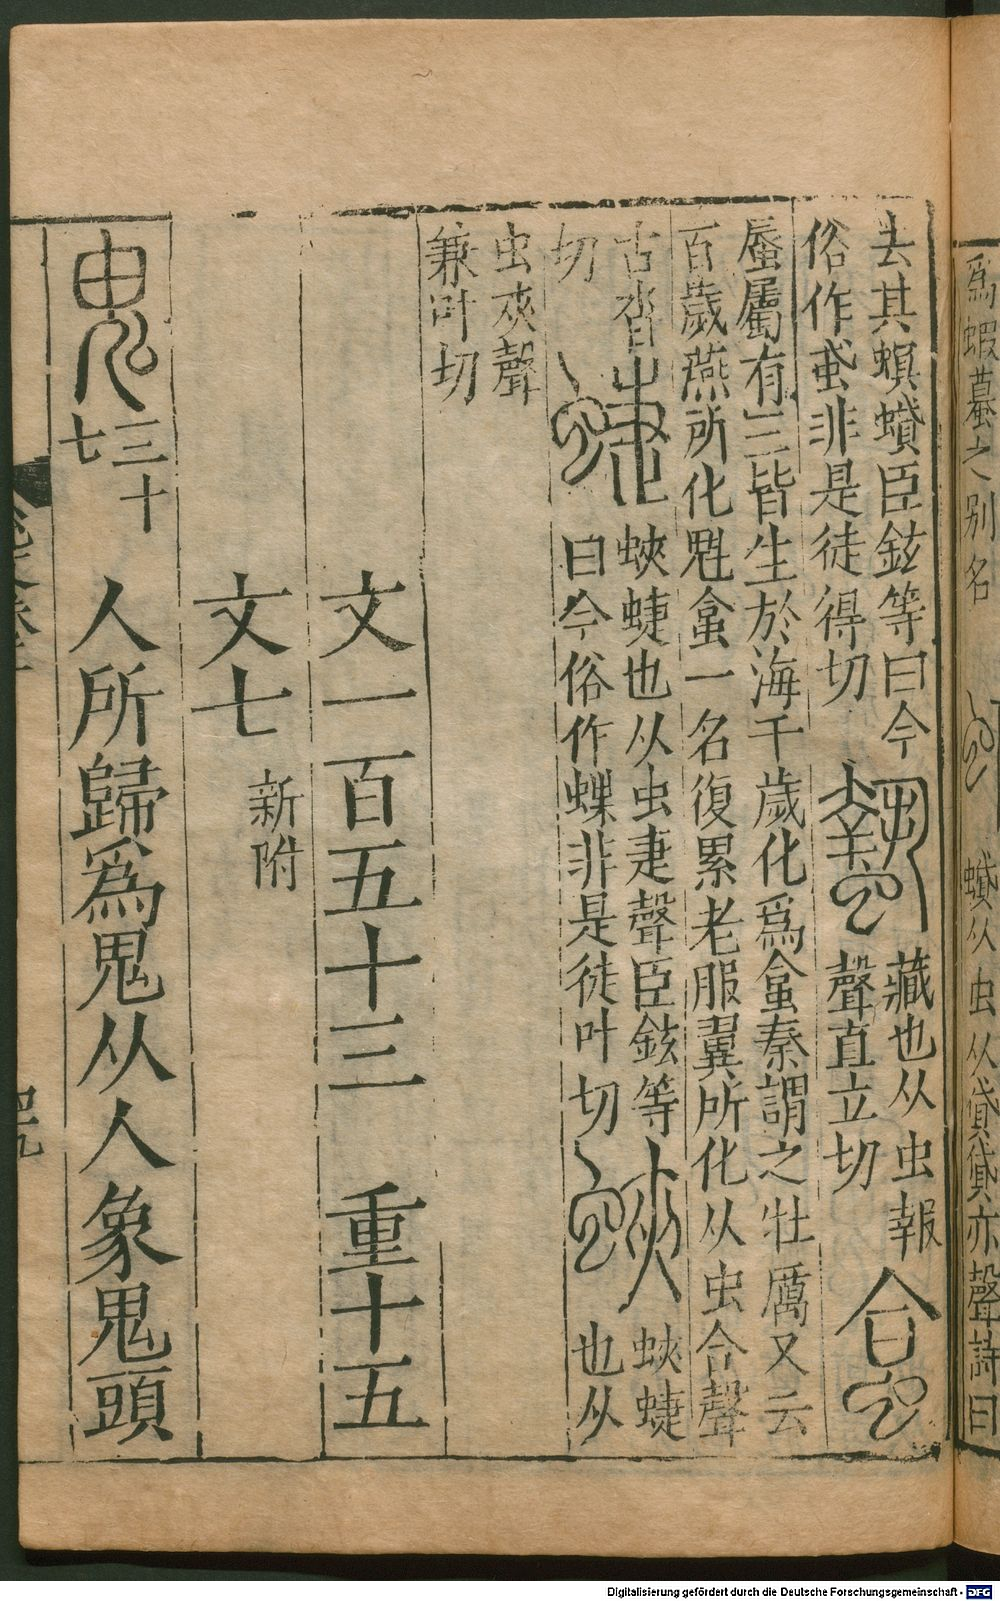 爲蝦蟇之别名
蟘从虫从貸貸亦聲詩曰
去其螟蟘臣鉉等曰今
俗作䘃非是徒得切
藏也从虫執
聲直立切
蜃屬有三皆生於海千歲化爲盒秦謂之牡厲又云
百歲燕所化魁盒一名復累老服翼所化从虫合聲
古沓
切
蛺蜨也从虫疌聲臣鉉等
曰今俗作蝶非是徒叶切
蛺蜨
也从
虫夾聲
兼叶切
文一百五十三 重十五
文七 新附
三十
七
人所歸爲鬼从人象鬼頭
四九
Digitalisierung gefördert durch die Deutsche Forschungsgemeinschaft - DFG